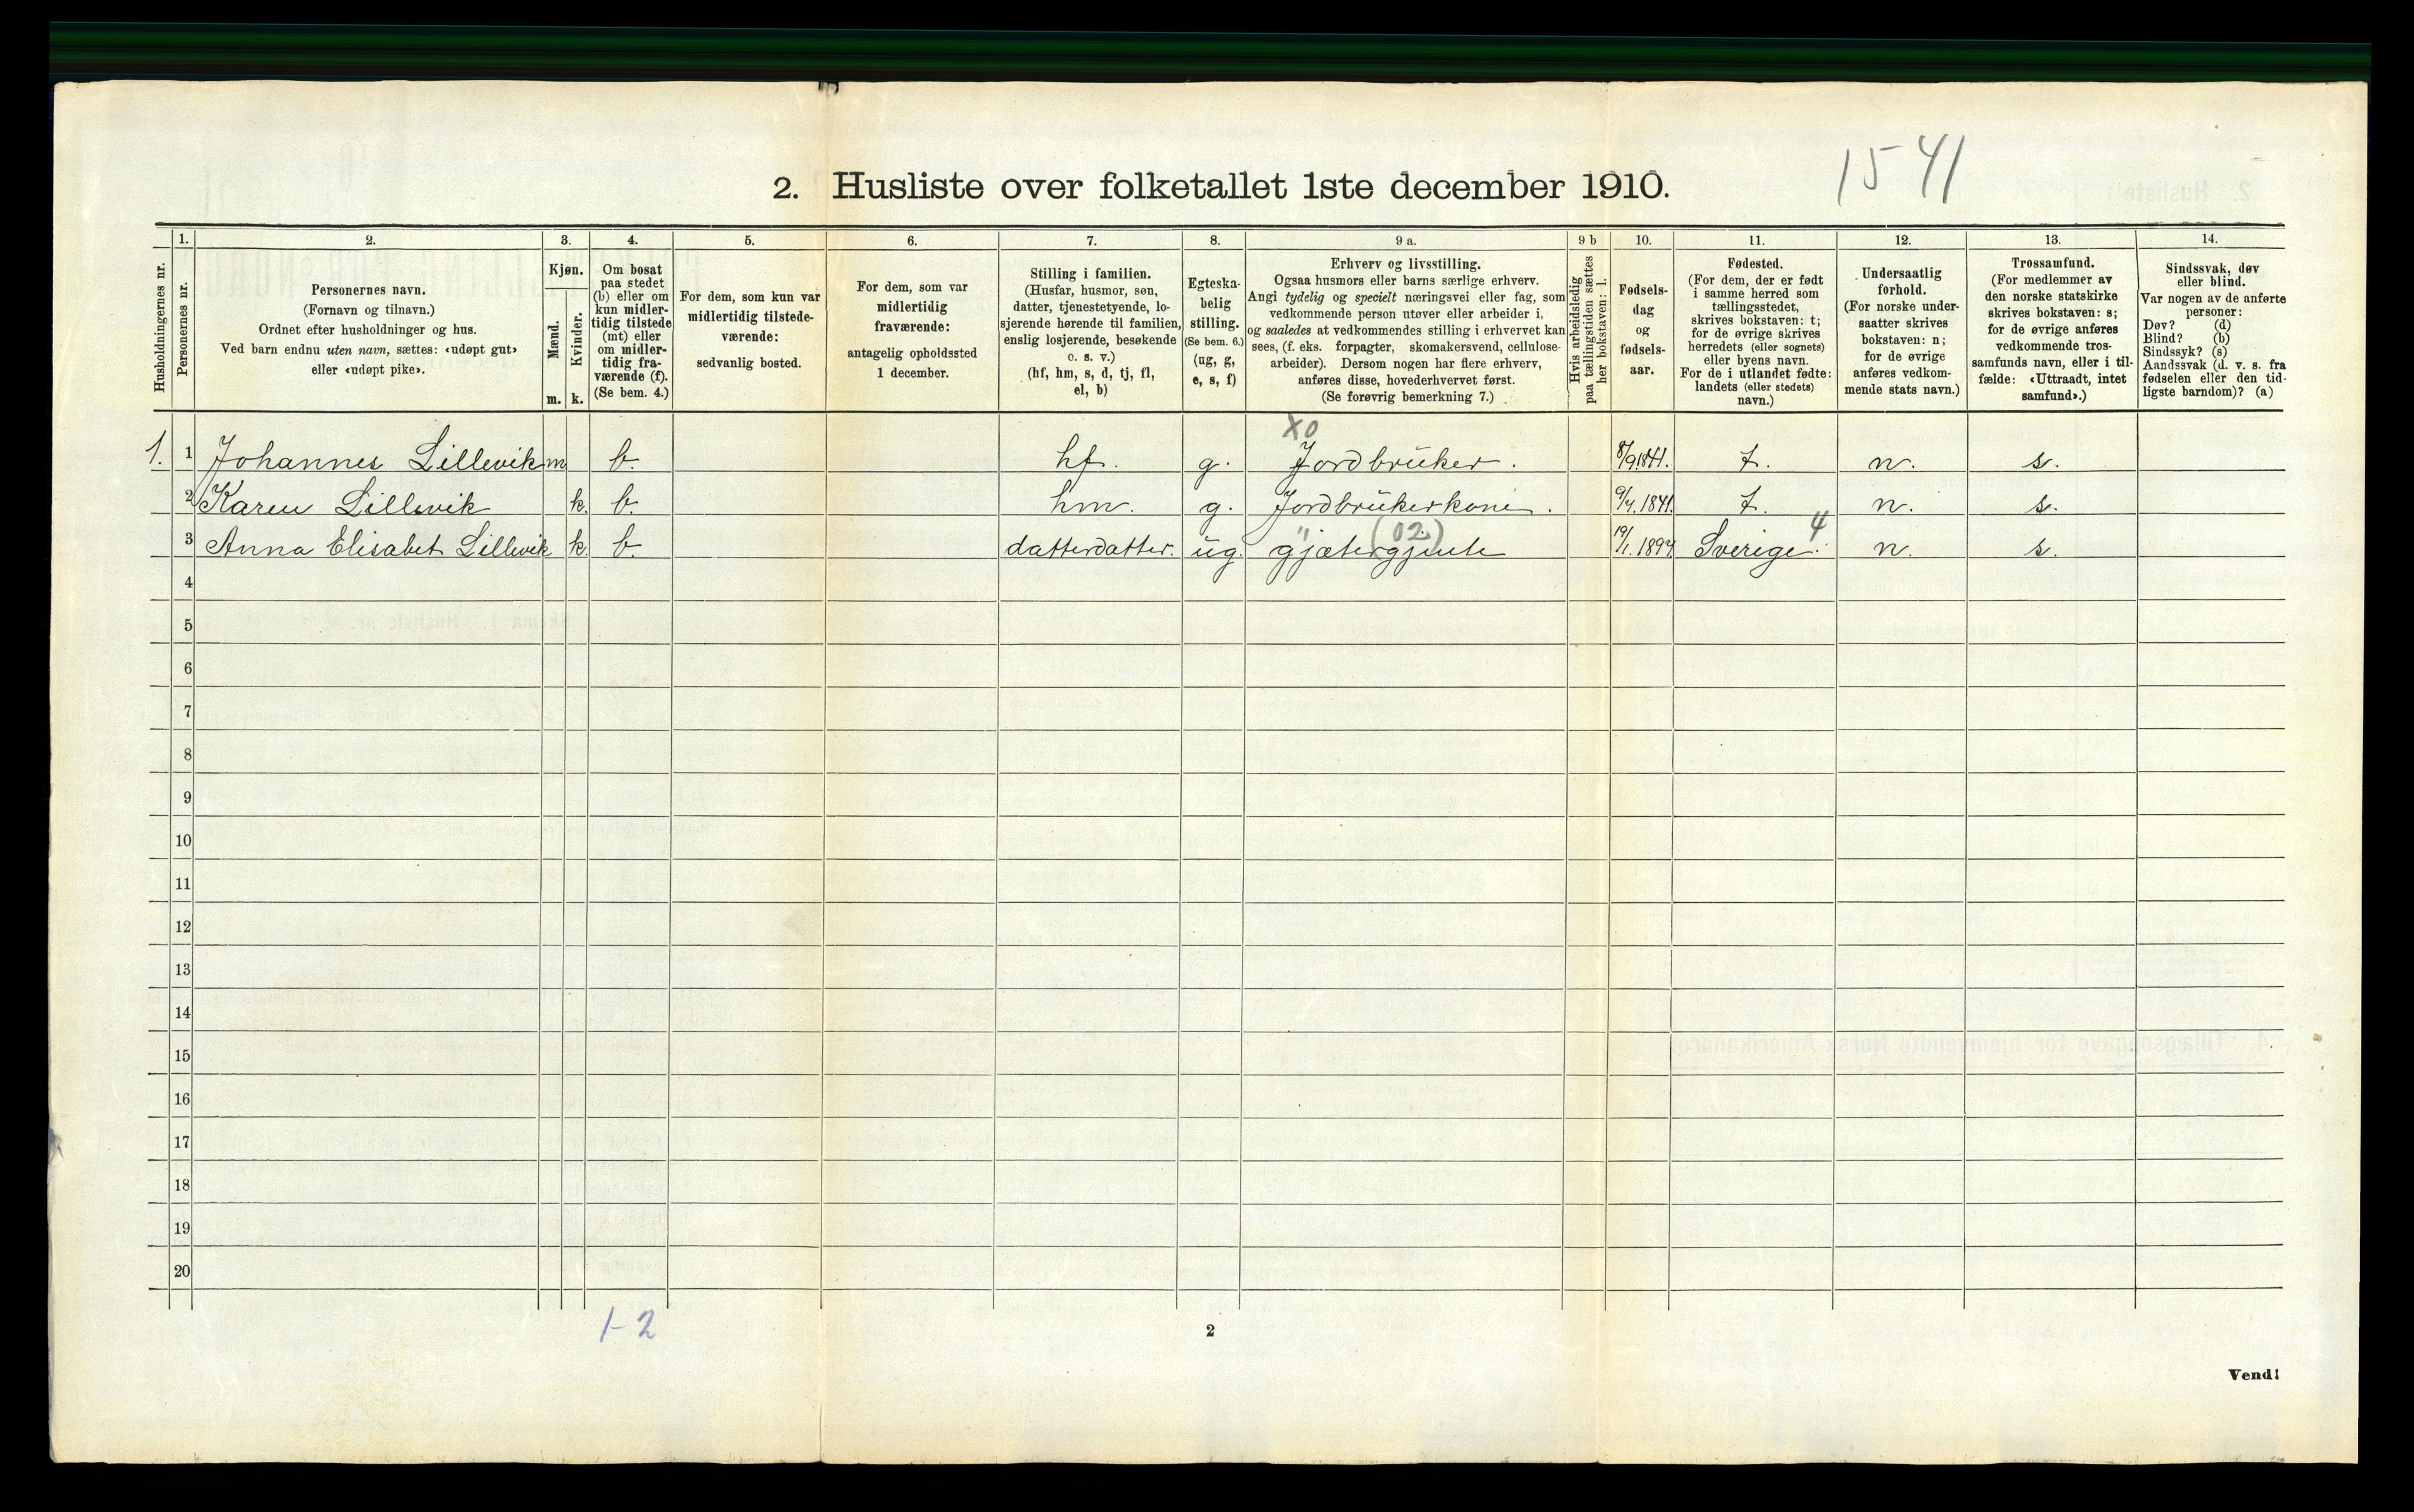 1541
2. Husliste over folketallet 1ste december 1910.
Husholdningernes nr.
1.
Personernes nr.
2.
Personernes navn.
(Fornavn og tilnavn.)
Ordnet efter husholdninger og hus.
Ved barn endnu uten navn, sættes: «udøpt gut»
eller «udøpt pike».
3.
Kjøn.
Mænd.
Kvinder.
m. k.
4.
Om bosat
paa stedet
(b) eller om
kun midler-
tidig tilstede
(mt) eller
om midler-
tidig fra-
værende (f).
(Se bem. 4.)
5.
For dem, som kun var
midlertidig tilstede-
værende:
sedvanlig bosted.
6.
For dem, som var
midlertidig
fraværende:
antagelig opholdssted
1 december.
7.
Stilling i familien.
(Husfar, husmor, søn,
datter, tjenestetyende, lo-
sjerende hørende til familien,
enslig losjerende, besøkende
o. s. v.)
(hf, hm, s, d, tj, fl,
el, b)
8.
Egteska-
belig
stilling.
(Se bem. 6.)
(ug, g,
e, s, f)
9 a.
Erhverv og livsstilling.
Ogsaa husmors eller barns særlige erhverv.
Angi tydelig og specielt næringsvei eller fag, som
vedkommende person utøver eller arbeider i,
og saaledes at vedkommendes stilling i erhvervet kan
sees, (f. eks. forpagter, skomakersvend, cellulose-
arbeider). Dersom nogen har flere erhverv,
anføres disse, hovederhvervet først.
(Se forøvrig bemerkning 7.)
9 b
Hvis arbeidsledig
paa tællingstiden sættes
her bokstaven: l.
10.
Fødsels-
dag
og
fødsels-
aar.
11.
Fødested.
(For dem, der er født
i samme herred som
tællingsstedet,
skrives bokstaven: t;
for de øvrige skrives
herredets (eller sognets)
eller byens navn.
For de i utlandet fødte:
landets (eller stedets)
navn.)
12.
Undersaatlig
forhold.
(For norske under-
saatter skrives
bokstaven: n;
for de øvrige
anføres vedkom-
mende stats navn.)
13.
Trossamfund.
(For medlemmer av
den norske statskirke
skrives bokstaven: s;
for de øvrige anføres
vedkommende tros-
samfunds navn, eller i til-
fælde: «Uttraadt, intet
samfund».)
14.
Sindssvak, døv
eller blind.
Var nogen av de anførte
personer:
Døv? (d)
Blind? (b)
Sindssyk? (s)
Aandssvak (d. v. s. fra
fødselen eller den tid-
ligste barndom)? (a)
X0
1. 1 Johannes Lillevik m b. hf. g. Jordbruker. 8/9 1841. t. n. s.
2 Karen Lillevik k. b. hm. g. Jordbrukerkone. 9/4. 1841. t. n. s.
" (02.) 4
3 Anna Elisabet Lillevik k. b. datterdatter. ug. gjætergjente 19/1. 1897 Sverige. n. s.
4
5
6
7
8
9
10
11
12
13
14
15
16
17
18
19
20
1-2
2
Vend!